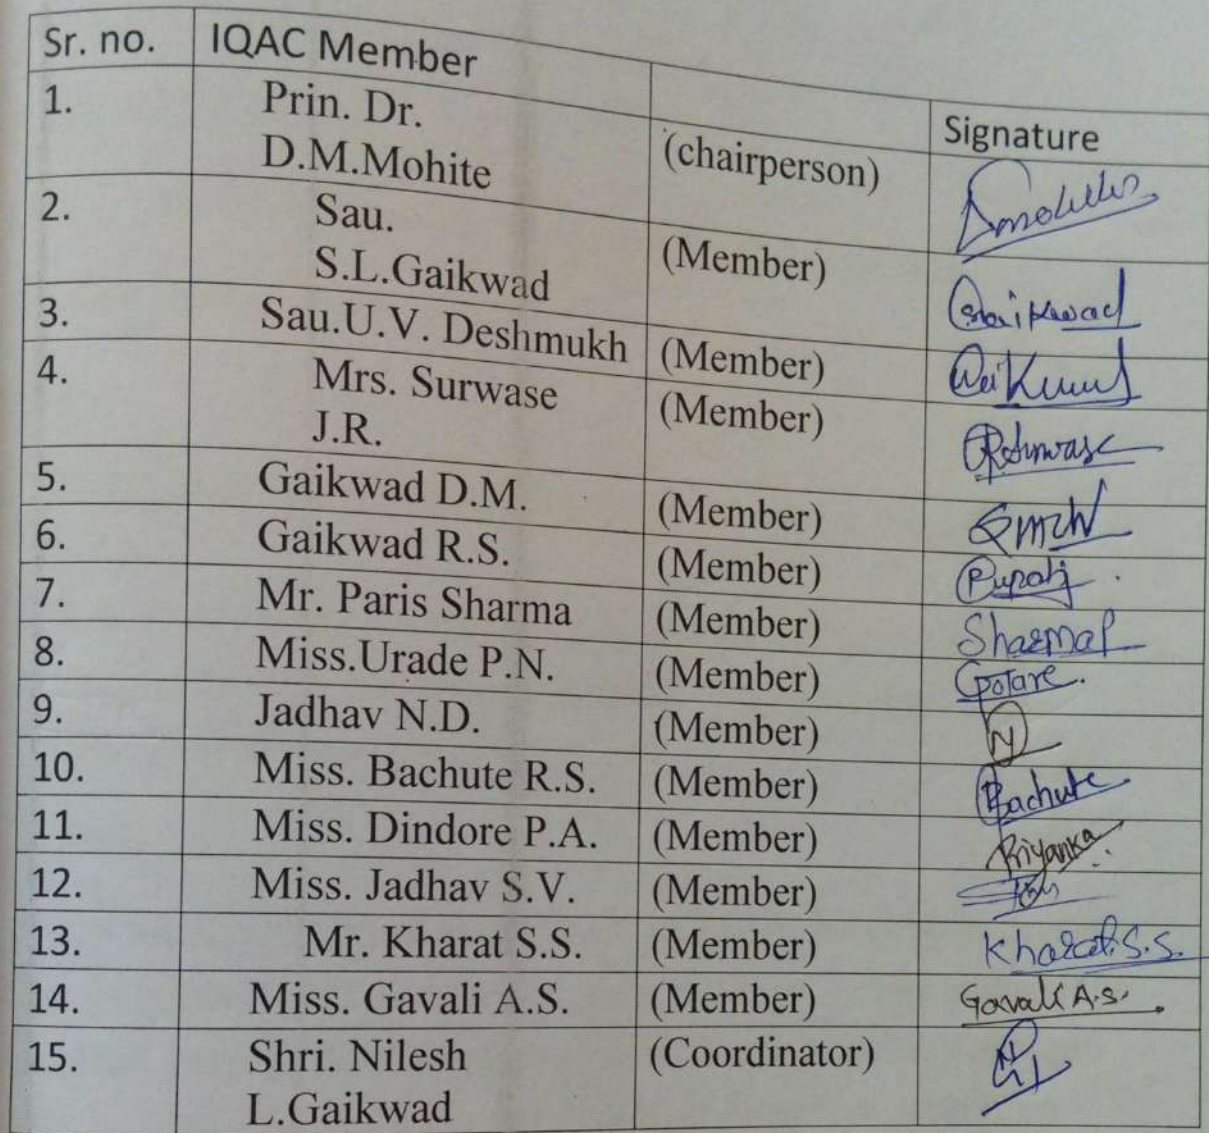 Sr. no. IQAC Member Signature
1. Prin. Dr. (chairperson)
D.M.Mohite
2. Sau. (Member)
S.L.Gaikwad Gaikwad
3. Sau.U.V. Deshmukh (Member)
4. Mrs. Surwase (Member)
J.R. RSurwase
5. Gaikwad D.M. (Member)
6. Gaikwad R.S. (Member)
7. Mr. Paris Sharma (Member) SharmaP
8. Miss.Urade P.N. (Member)
9. Jadhav N.D. (Member) N
10. Miss. Bachute R.S. (Member) Bachute
11. Miss. Dindore P.A. (Member) Priyanka
12. Miss. Jadhav S.V. (Member)
13. Mr. Kharat S.S. (Member) Kharat.S.S.
14. Miss. Gavali A.S. (Member) Gavali A.S.
15. Shri. Nilesh (Coordinator)
L.Gaikwad